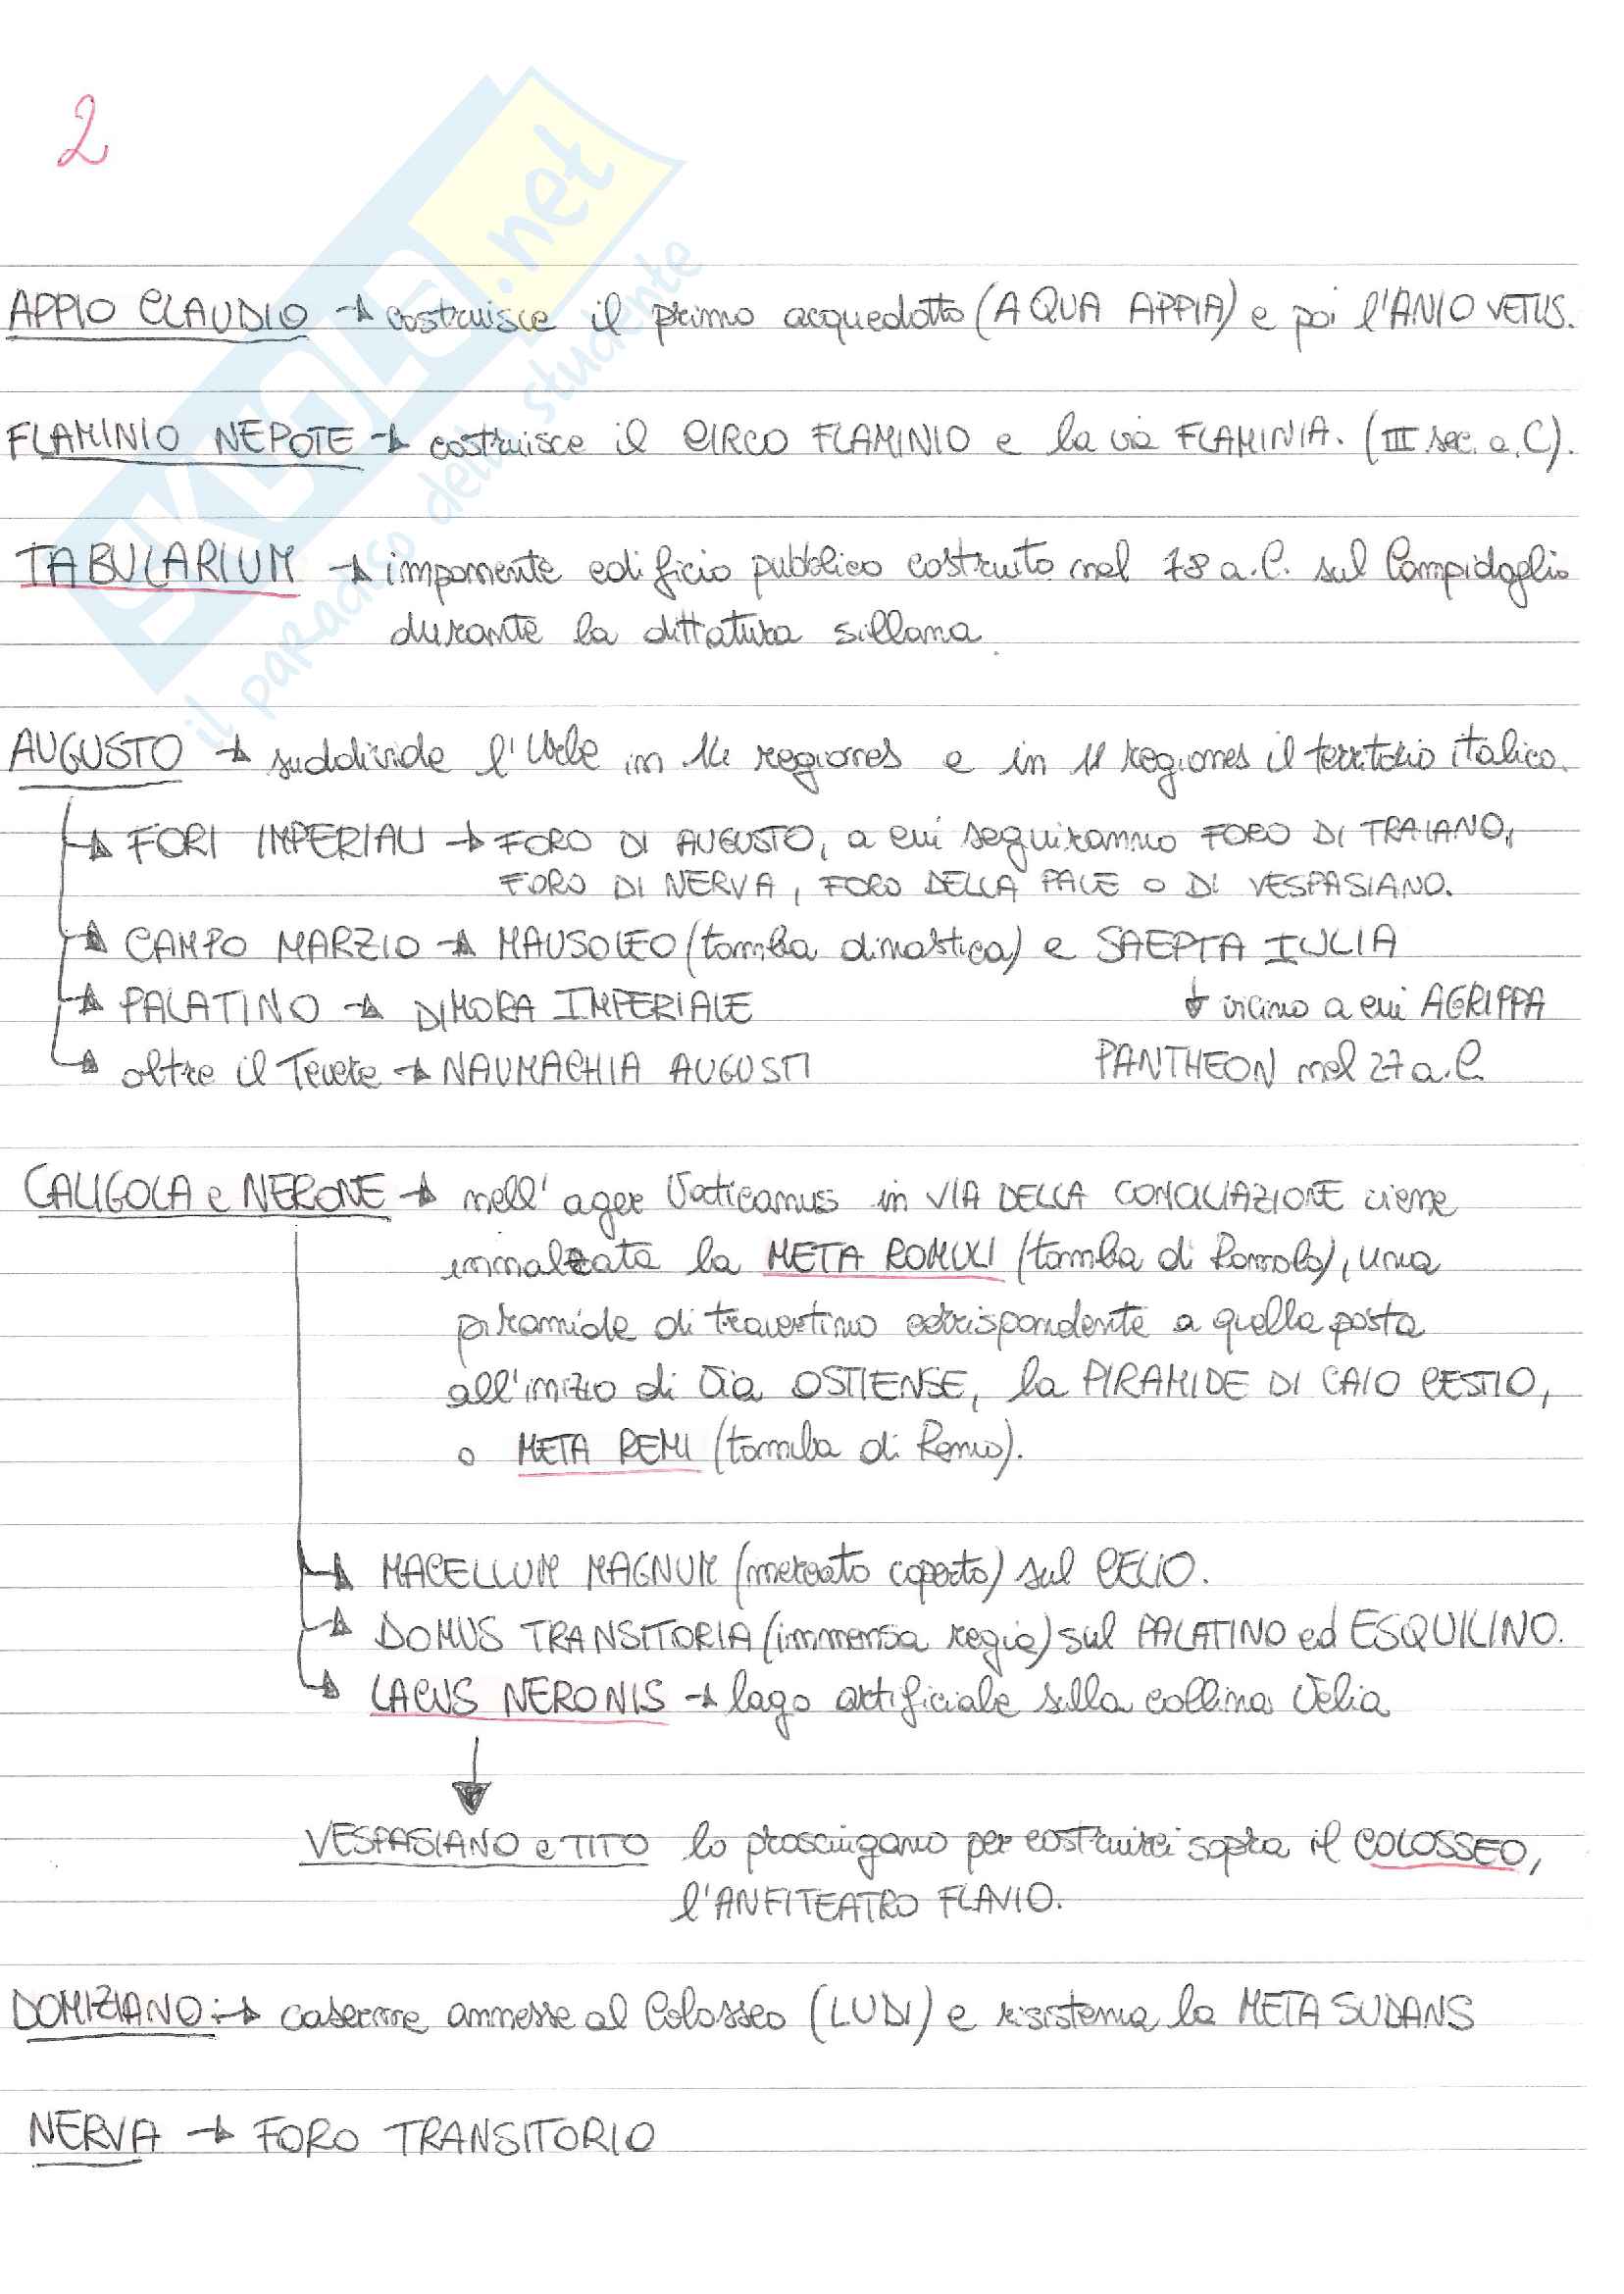 2
SKUOLA.net
il paradiso dello studente
APPIO CLAUDIO → costruisce il primo acquedotto (AQUA APPIA) e poi l'ANIO VETUS.
FLAMINIO NEPOTE → costruisce il CIRCO FLAMINIO e la via FLAMINIA. (III sec. a.C).
TABULARIUM → imponente edificio pubblico costruito nel 78 a.C. sul Campidoglio
durante la dittatura sillana.
AUGUSTO → suddivide l'Urbe in 14 regiones e in 11 regiones il territorio italico.
→ FORI IMPERIALI → FORO DI AUGUSTO, a cui seguiranno FORO DI TRAIANO,
FORO DI NERVA, FORO DELLA PACE O DI VESPASIANO.
→ CAMPO MARZIO → MAUSOLEO (tomba dinastica) e SAEPTA IULIA
→ PALATINO → DIMORA IMPERIALE ↓ vicino a cui AGRIPPA
→ oltre il Tevere → NAUMACHIA AUGUSTI PANTHEON nel 27 a.C.
CALIGOLA e NERONE → nell'ager Vaticanus in VIA DELLA CONCILIAZIONE viene
innalzata la META ROMULI (tomba di Romolo), una
piramide di travertino corrispondente a quella posta
all'inizio di Via OSTIENSE, la PIRAMIDE DI CAIO CESTIO,
o META REMI (tomba di Remo).
→ MACELLUM MAGNUM (mercato coperto) sul CELIO.
→ DOMUS TRANSITORIA (immensa regia) sul PALATINO ed ESQUILINO.
→ LACUS NERONIS → lago artificiale sulla collina Velia
↓
VESPASIANO e TITO lo prosciugano per costruirci sopra il COLOSSEO,
l'ANFITEATRO FLAVIO.
DOMIZIANO: → caserme annesse al Colosseo (LUDI) e risistema la META SUDANS
NERVA → FORO TRANSITORIO